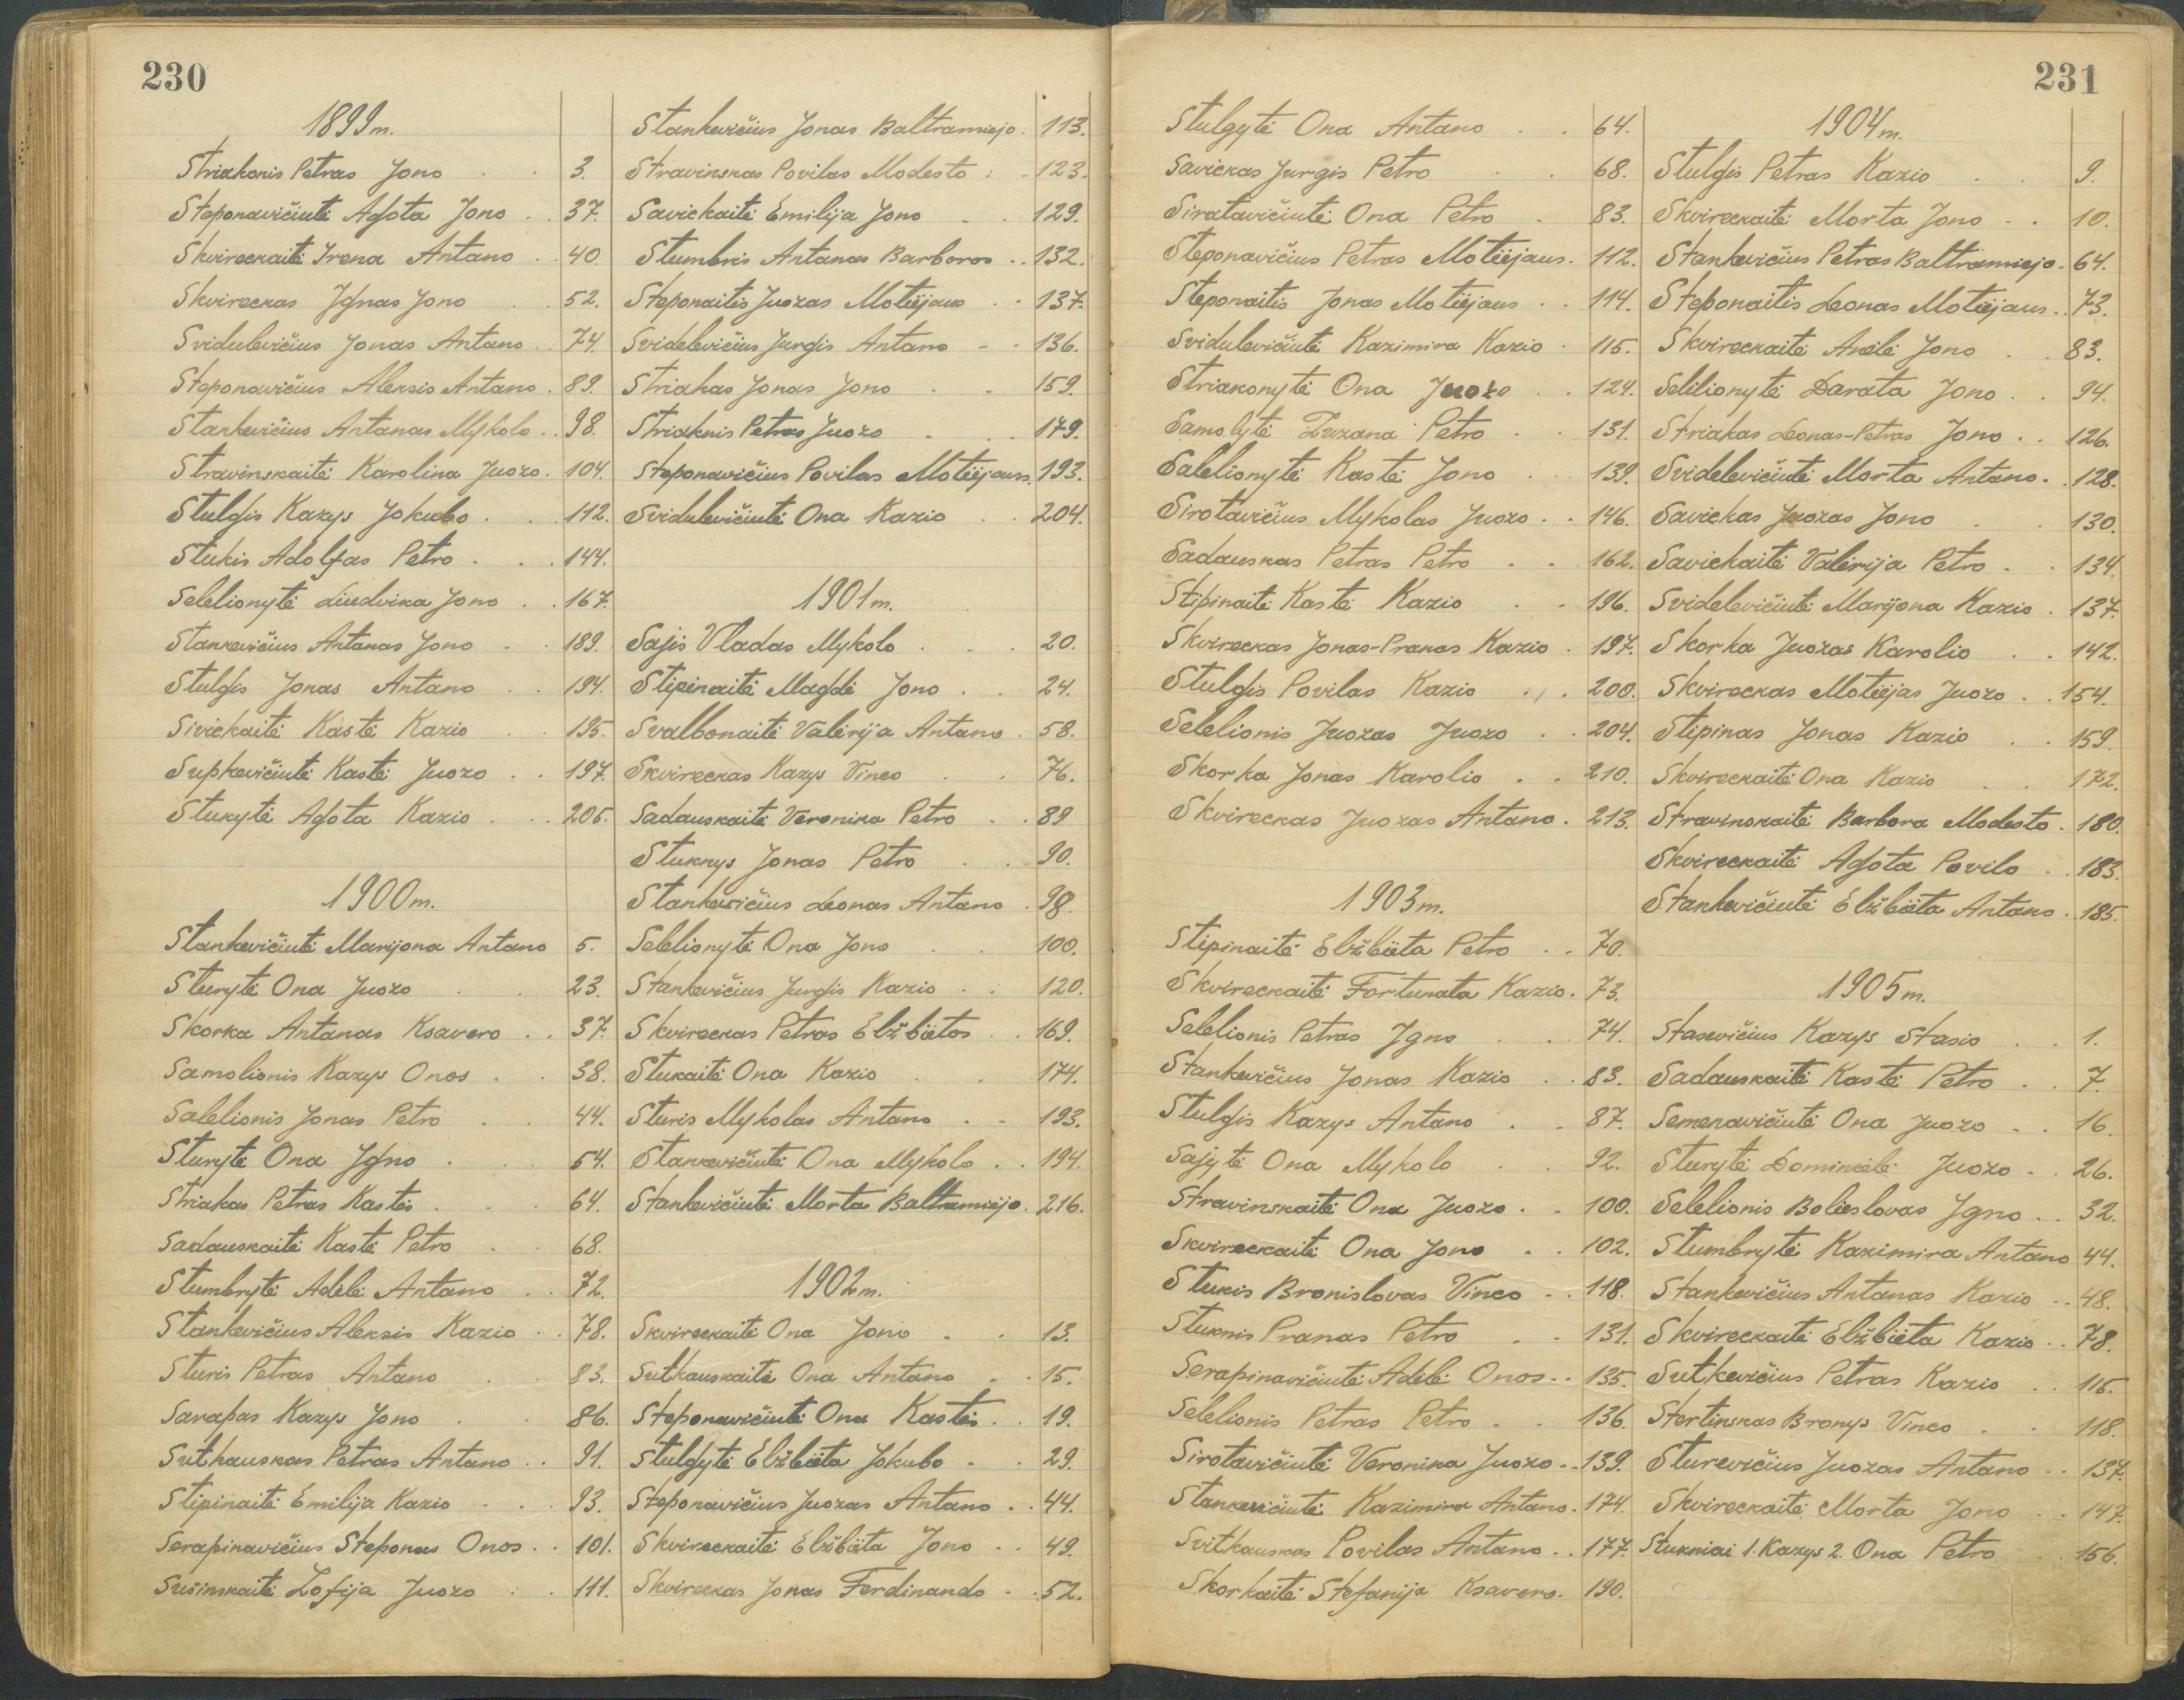 230
1899m.
Striakonis Petras Jono . . 3.
Steponavičiutė Agota Jono . . 37.
Skvireckaitė Irena Antano . . 40.
Skvireckas Ignas Jono . . 52.
Svidulevičius Jonas Antano . . 74.
Steponavičius Aleksis Antano . 89.
Stankevičius Antanas Mykolo . . 98.
Stravinskaitė Karolina Juozo . 104.
Stulgis Kazys Jokubo . . . 112.
Stukis Adolfas Petro . . . 144.
Selelionytė Liudvika Jono . . 167.
Stankevičius Antanas Jono . . 189.
Stulgis Jonas Antano . . 194.
Sivickaitė Kastė Kazio . . 195.
Supkevičiutė Kastė Juozo . . 197.
Stukytė Agota Kazio . . . 205.
1900m.
Stankevičiutė Marijona Antano 5.
Sturytė Ona Juozo . . 23.
Skorka Antanas Ksavero . . 37.
Samolionis Kazys Onos . . 38.
Salelionis Jonas Petro . . 44.
Sturytė Ona Igno . . . 54.
Striakas Petras Kastės . . . 64.
Sadauskaitė Kastė Petro . . 68.
Stumbrytė Adėlė Antano . . 72.
Stankevičius Aleksis Kazio . . 78.
Sturis Petras Antano . . 83.
Sarapas Kazys Jono . . 86.
Sutkauskas Petras Antano . . 91.
Stipinaitė Emilija Kazio . . . 93.
Serapinavičius Steponas Onos . . 101.
Susinskaitė Zofija Juozo . . 111.
Stankevičius Jonas Baltramiejo . 113.
Stravinskas Povilas Modesto . . 123.
Savickaitė Emilija Jono . . 129.
Stumbris Antanas Barboros . . 132.
Steponaitis Juozas Motiėjaus . . 137.
Svidelevičius Jurgis Antano . . 136.
Striakas Jonas Jono . . 159.
Striaknis Petras Juozo . . . 179.
Steponavičius Povilas Motiėjaus. 193.
Svidulevičiutė Ona Kazio . . 204.
1901m.
Sajis Vladas Mykolo . . . 20.
Stipinaitė Magdė Jono . . 24.
Svalbonaitė Valėrija Antano . 58.
Skvireckas Kazys Vinco . . 76.
Sadauskaitė Veronika Petro . . 89
Stuknys Jonas Petro . . 90.
Stankevičius Leonas Antano . 98.
Selelionytė Ona Jono . . 100.
Stankevičius Jurgis Kazio . . 120.
Skvireckas Petras Elžbiėtos . . 169.
Stukaitė Ona Kazio . . 174.
Sturis Mykolas Antano . . 193.
Stankevičiutė Ona Mykolo . . 194.
Stankevičiutė Morta Baltramiejo . 216.
1902m.
Skvireckaitė Ona Jono . . 13.
Sutkauskaitė Ona Antano . . 15.
Steponavičiutė Ona Kastės . . 19.
Stulgytė Elžbiėta Jokubo . . 29.
Steponavičius Juozas Antano . . 44.
Skvireckaitė Elžbiėta Jono . . 49.
Skvireckas Jonas Ferdinando . . 52.
231
Stulgytė Ona Antano . . 64.
Savickas Jurgis Petro . . 68.
Siratavičiutė Ona Petro . 83.
Steponavičius Petras Motiėjaus . 112.
Steponaitis Jonas Motiėjaus . . 114.
Svidulevičiutė Kazimira Kazio . 115.
Striakonytė Ona Juozo . . 124.
Samolytė Zuzana Petro . . 131.
Salelionytė Kastė Jono . . 139.
Sirotavičius Mykolas Juozo . . 146.
Sadauskas Petras Petro . . 162.
Stipinaitė Kastė Kazio . . 196.
Skvireckas Jonas-Pranas Kazio . 197.
Stulgis Povilas Kazio . . . 200.
Selelionis Juozas Juozo . . 204.
Skorka Jonas Karolio . . 210.
Skvireckas Juozas Antano . 213.
1903m.
Stipinaitė Elžbiėta Petro . . 70.
Skvireckaitė Fortunata Kazio . 73.
Selelionis Petras Igno . . 74.
Stankevičius Jonas Kazio . . 83.
Stulgis Kazys Antano . . 87.
Sajytė Ona Mykolo . . 92.
Stravinskaitė Ona Juozo . . 100.
Skvireckaitė Ona Jono . . 102.
Stukis Bronislovas Vinco . . 118.
Stuknis Pranas Petro . . 131.
Serapinavičiutė Adėlė Onos . . 135.
Selelionis Petras Petro . . 136.
Sirotavičiutė Veronika Juozo . . 139.
Stankevičiutė Kazimira Antano . 174.
Svitkauskas Povilas Antano . . 177.
Skorkaitė Stefanija Ksavero . 190.
1904m.
Stulgis Petras Kazio . . 9.
Skvireckaitė Morta Jono . . 10.
Stankevičius Petras Baltramiejo . 64.
Steponaitis Leonas Motiėjaus . . 73.
Skvireckaitė Anėlė Jono . . 83.
Selilionytė Darata Jono . . 94.
Striakas Leonas-Petras Jono . . 126.
Svidelevičiutė Morta Antano . . 128.
Savickas Juozas Jono . . 130.
Savickaitė Valėrija Petro . . 134.
Svidelevičiutė Marijona Kazio . 137.
Skorka Juozas Karolio . . 142.
Skvireckas Motiėjas Juozo . . 154.
Stipinas Jonas Kazio . . 159.
Skvireckaitė Ona Kazio . . 172.
Stravinskaitė Barbora Modesto . 180.
Skvireckaitė Agota Povilo . . 183.
Stankevičiutė Elžbiėta Antano . 185.
1905m.
Stasevičius Kazys Stasio . . 1.
Sadauskaitė Kastė Petro . . 7.
Semenavičiutė Ona Juozo . . 16.
Sturytė Domincėlė Juozo . . 26.
Selelionis Bolieslovas Igno . . 32.
Stumbrytė Kazimira Antano 44.
Stankevičius Antanas Kazio . . 48.
Skvireckaitė Elžbiėta Kazio . . 78.
Sutkevičius Petras Kazio . . 115.
Stertinskas Bronys Vinco . . 118.
Sturevičius Juozas Antano . . 137.
Skvireckaitė Morta Jono . . 147.
Stukniai 1. Kazys 2. Ona Petro . . 156.